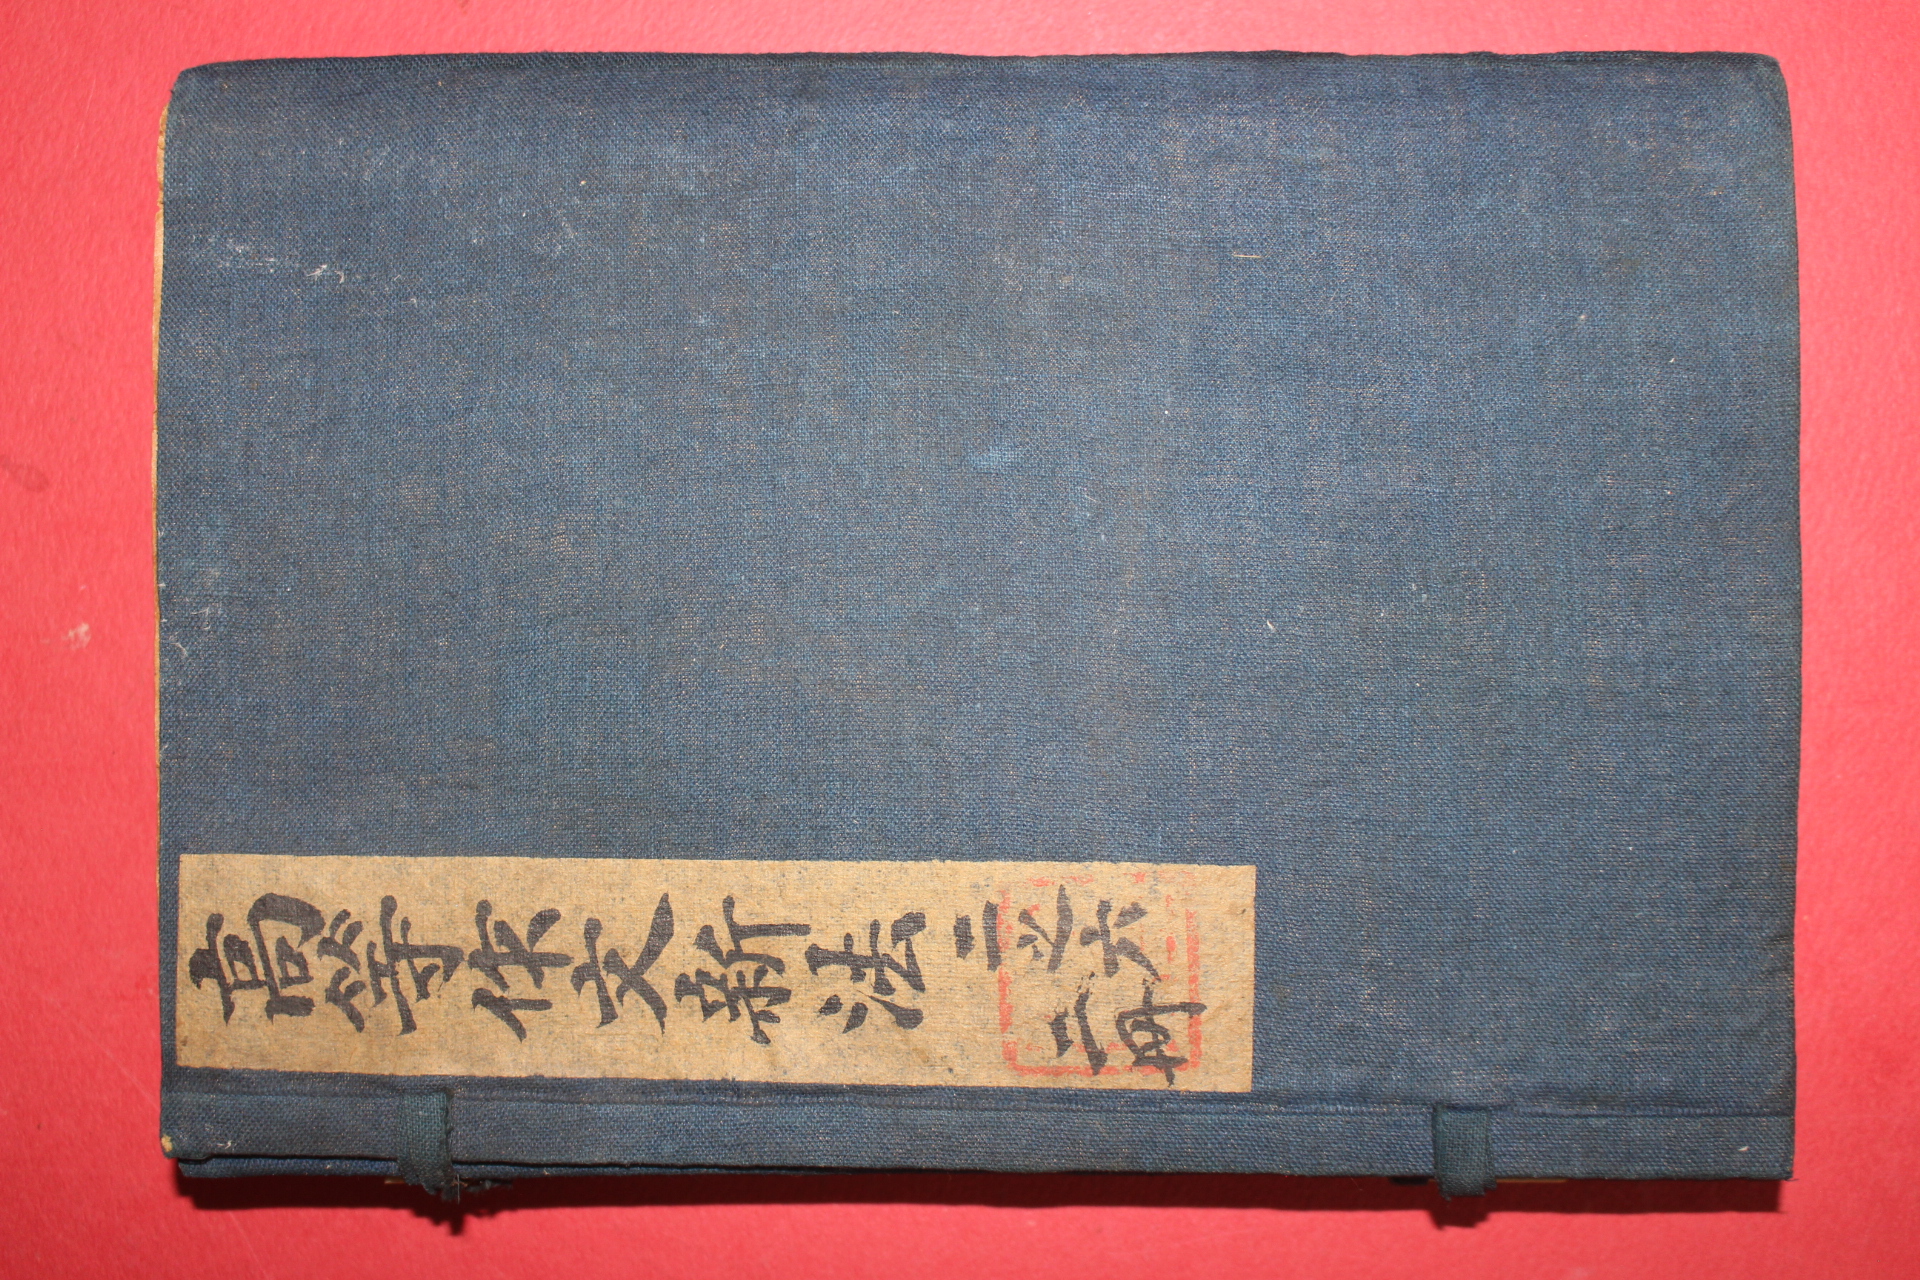 高等作文新法二
六
二冊